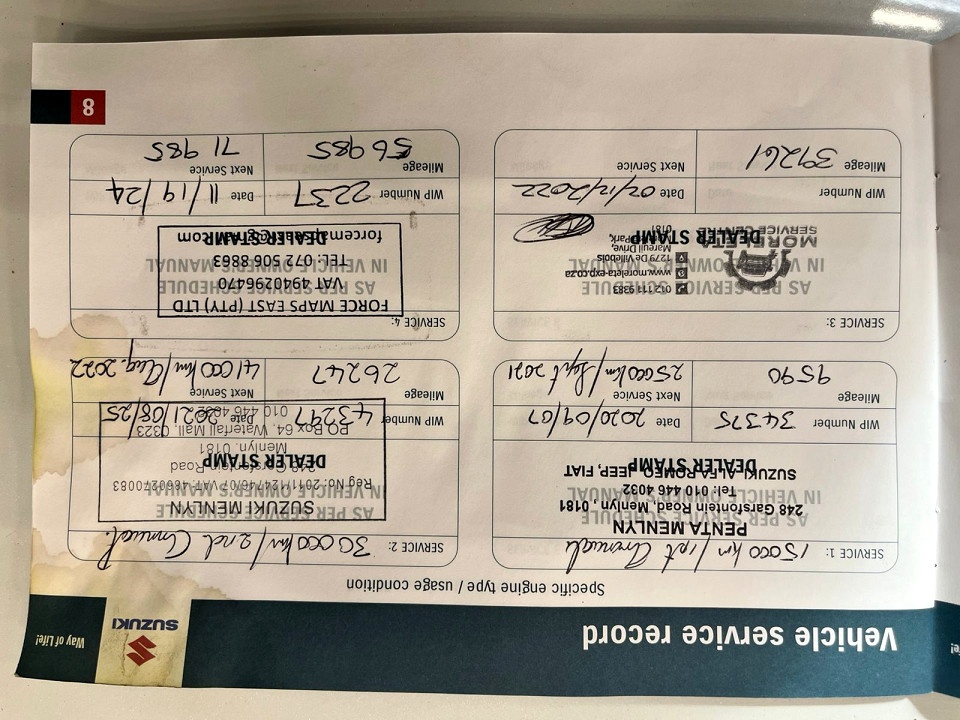 Vehicle service record
SUZUKI
Way of Life!
Specific engine type / usage condition
SERVICE 1: 15000 km / 1st Annual
AS PER SERVICE SCHEDULE
IN VEHICLE OWNER'S MANUAL
DEALER STAMP
PENTA MENLYN
248 Garsfontein Road, Menlyn, 0181
Tel: 010 446 4032
SUZUKI, ALFA ROMEO, JEEP, FIAT
WIP Number 34375 Date 2020/09/07
Mileage 9590 Next Service 25000km/Sept 2021
SERVICE 2: 30000 km / 2nd Annual.
AS PER SERVICE SCHEDULE
IN VEHICLE OWNER'S MANUAL
DEALER STAMP
SUZUKI MENLYN
Reg No: 2011/124746/07 VAT: 4660270083
248 Garsfontein Road
Menlyn. 0181
PO Box 64, Waterfall Mall, 0323
010 446 4032
WIP Number 43297 Date 2021/08/25
Mileage 26247 Next Service 41000km/Aug. 2022
SERVICE 3:
AS PER SERVICE SCHEDULE
IN VEHICLE OWNER'S MANUAL
DEALER STAMP
SERVICE CENTRE
012 111 9383
www.moreleta-exp.co.za
1279 De Villebois
Mareuil Drive,
0181
WIP Number Date 02/12/2022
Mileage 39261 Next Service
SERVICE 4:
AS PER SERVICE SCHEDULE
IN VEHICLE OWNER'S MANUAL
DEALER STAMP
FORCE MAPS EAST (PTY) LTD
VAT 4940296470
TEL: 072 506 8863
forcemapseast@gmail.com
WIP Number 2237 Date 11/19/24
Mileage 56985 Next Service 71985
8